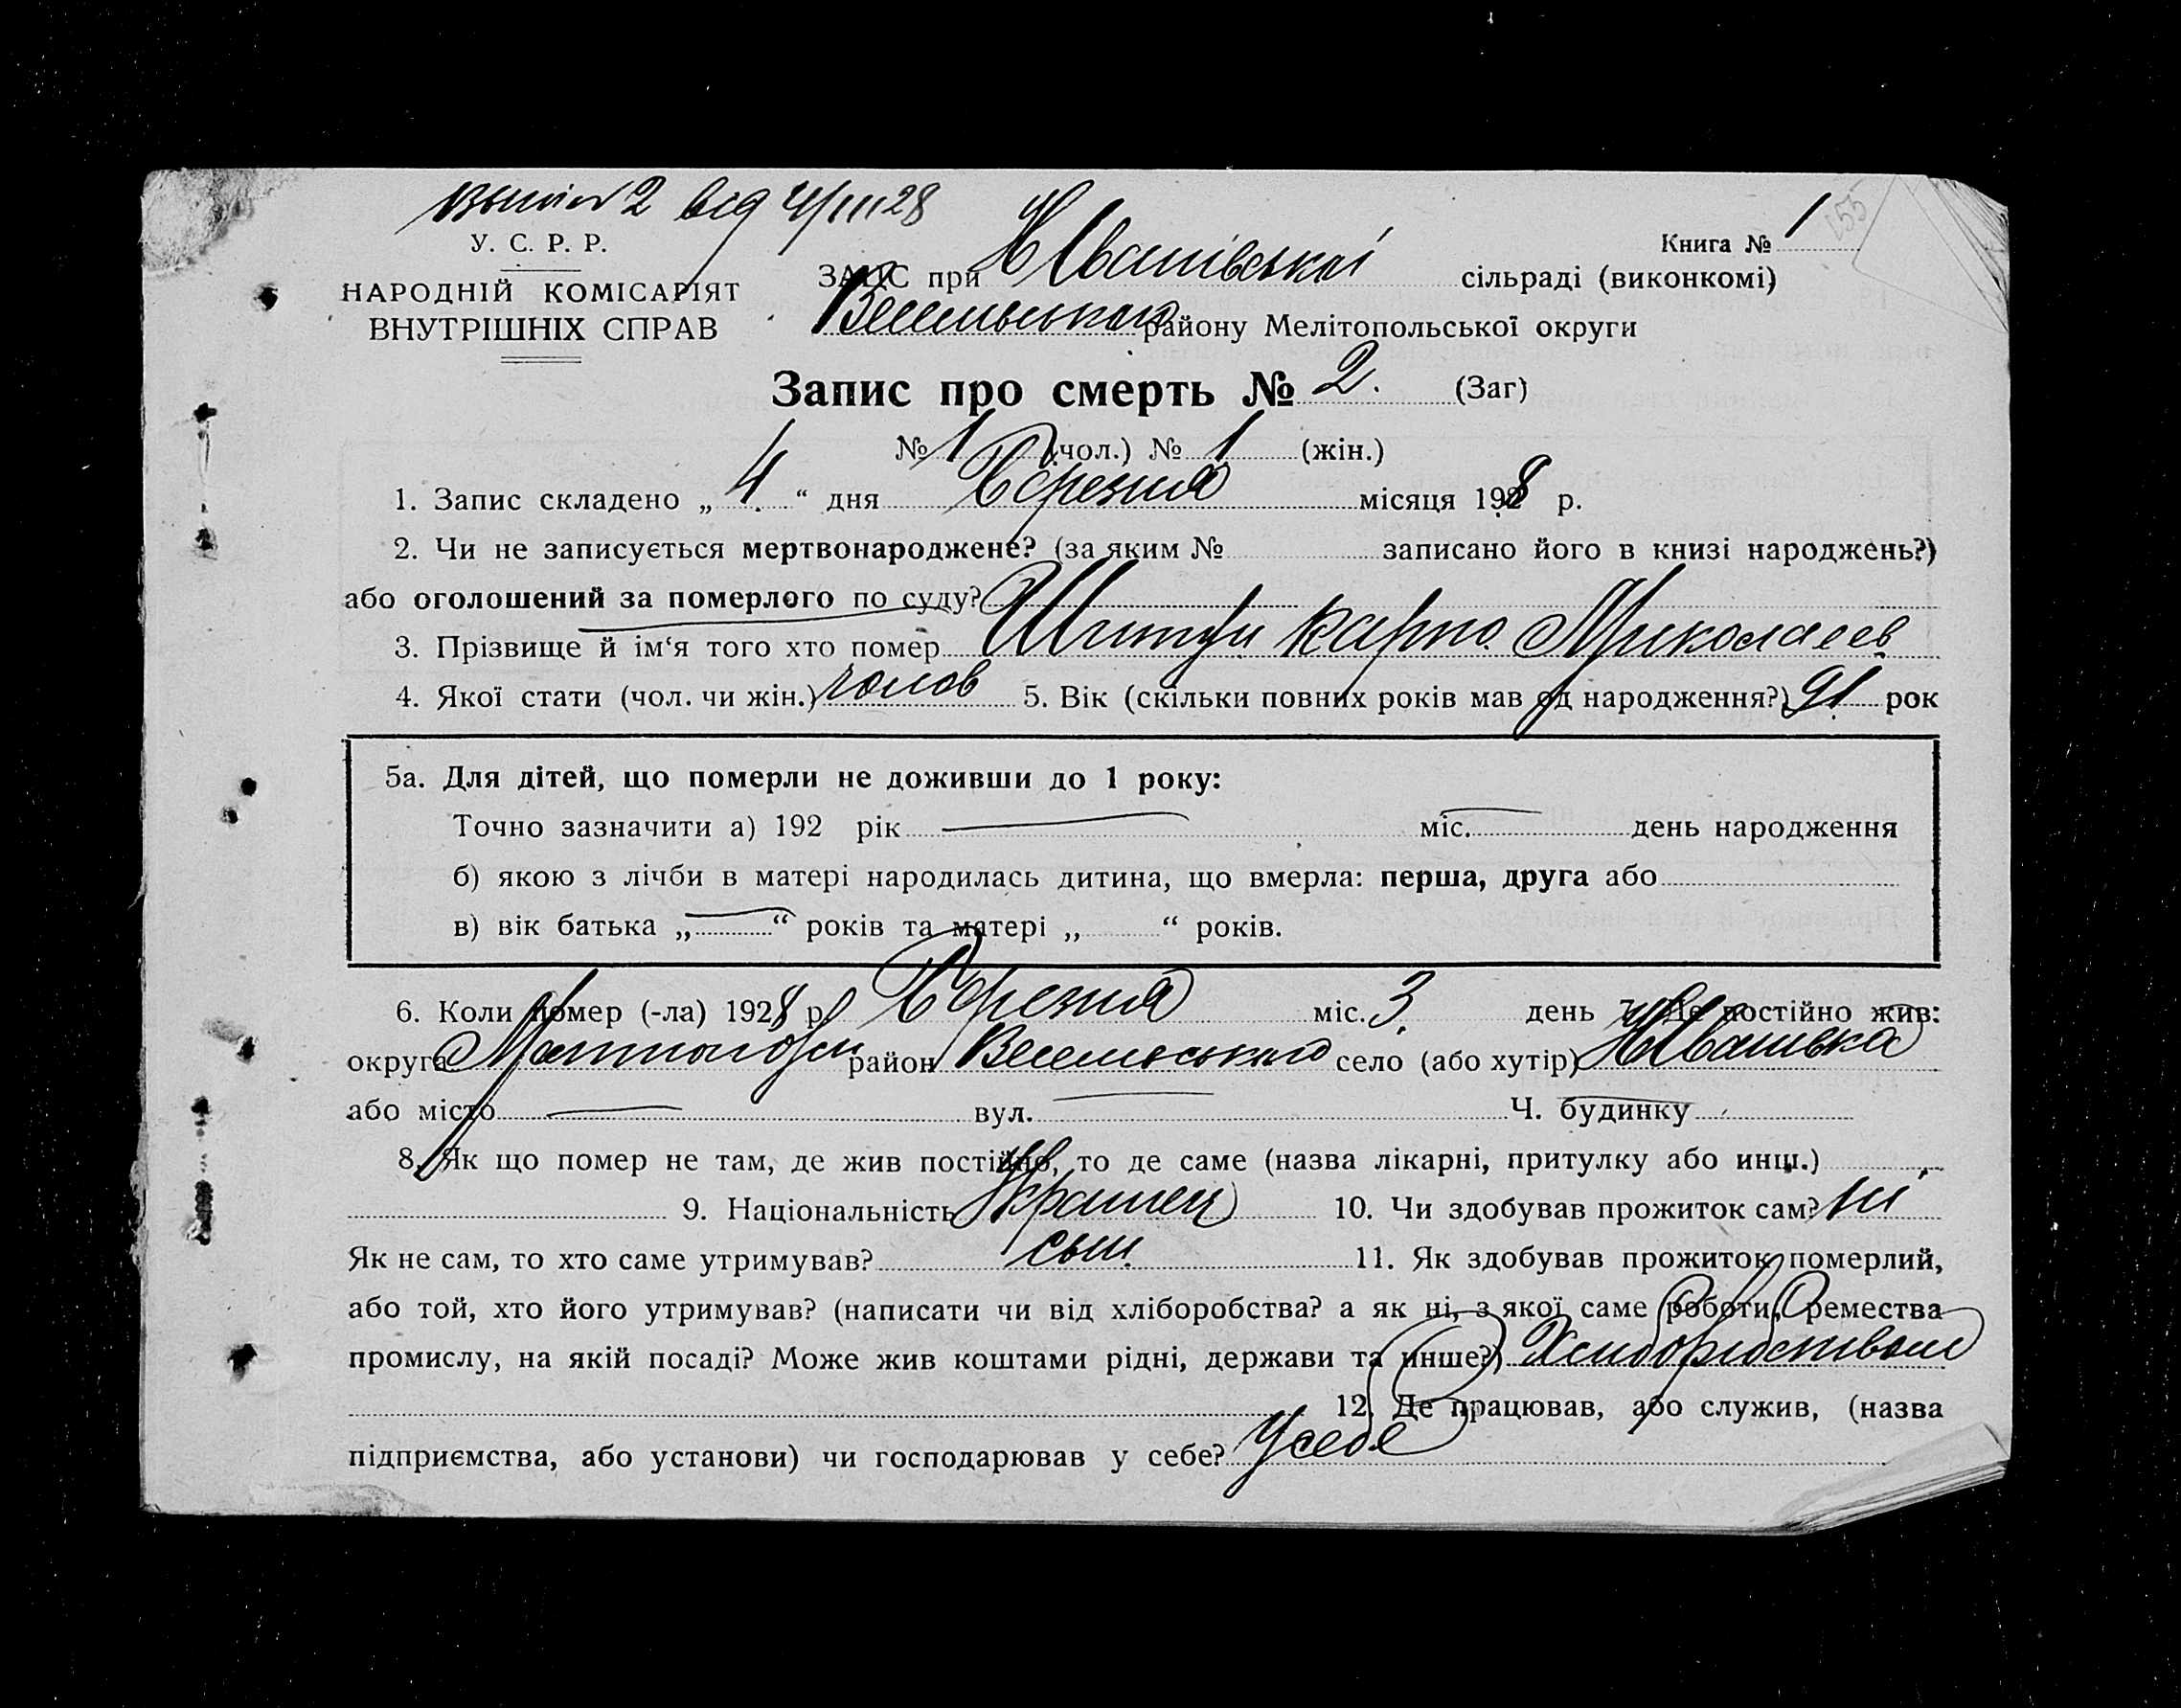 2 від 4/III 28
У. С. Р. Р.
Книга № 1
155
НАРОДНІЙ КОМІСАРІЯТ
ВНУТРІШНІХ СПРАВ
ЗАПИС при Н Іванівській сільраді (виконкомі)
Веселівського району Мелітопольської округи
Запис про смерть № 2. (Заг)
№ 1 (чол.) № 1 (жін.)
1. Запис складено „ 4. “ дня березня місяця 1928 р.
2. Чи не записується мертвонароджене? (за яким № записано його в книзі народжень?)
або оголошений за померлого по суду?
3. Прізвище й ім‘я того хто помер Карпо Миколаев
4. Якої стати (чол. чи жін.) чолов 5. Вік (скільки повних років мав од народження?) 91 рок
5а. Для дітей, що померли не доживши до 1 року:
Точно зазначити а) 192 рік — міс. — день народження
б) якою з лічби в матері народилась дитина, що вмерла: перша, друга або
в) вік батька „ — “ років та матері „ “ років.
6. Коли помер (-ла) 1928 р. березня міс. 3. день 7. Де постійно жив:
округа район село (або хутір) Н Іванівка
або місто — вул. — Ч. будинку —
8. Як що помер не там, де жив постійно, то де саме (назва лікарні, притулку або инш.)
9. Національність Украинец 10. Чи здобував прожиток сам? ні
Як не сам, то хто саме утримував? сын. 11. Як здобував прожиток померлий,
або той, хто його утримував? (написати чи від хліборобства? а як ні, з якої саме роботи, ремества
промислу, на якій посаді? Може жив коштами рідні, держави та инше?) Хлиборобством
12. Де працював, або служив, (назва
підприємства, або установи) чи господарював у себе? У себе